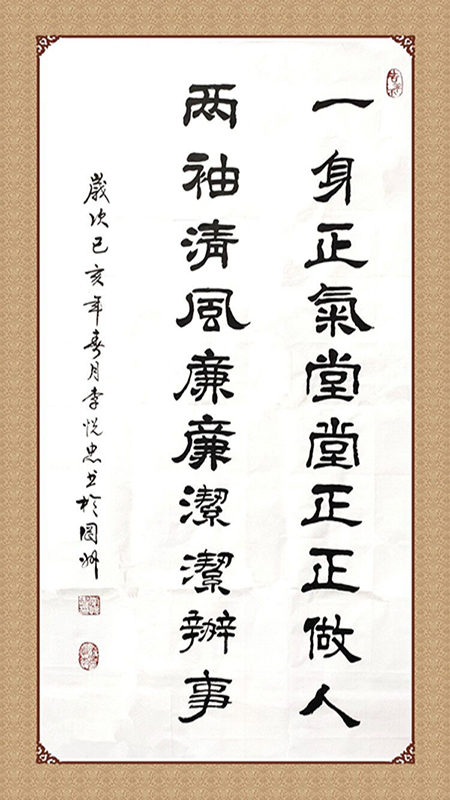 一身正氣堂堂正正做人
两袖清風廉廉潔潔辦事
歲次己亥年春月李悦忠书於固州